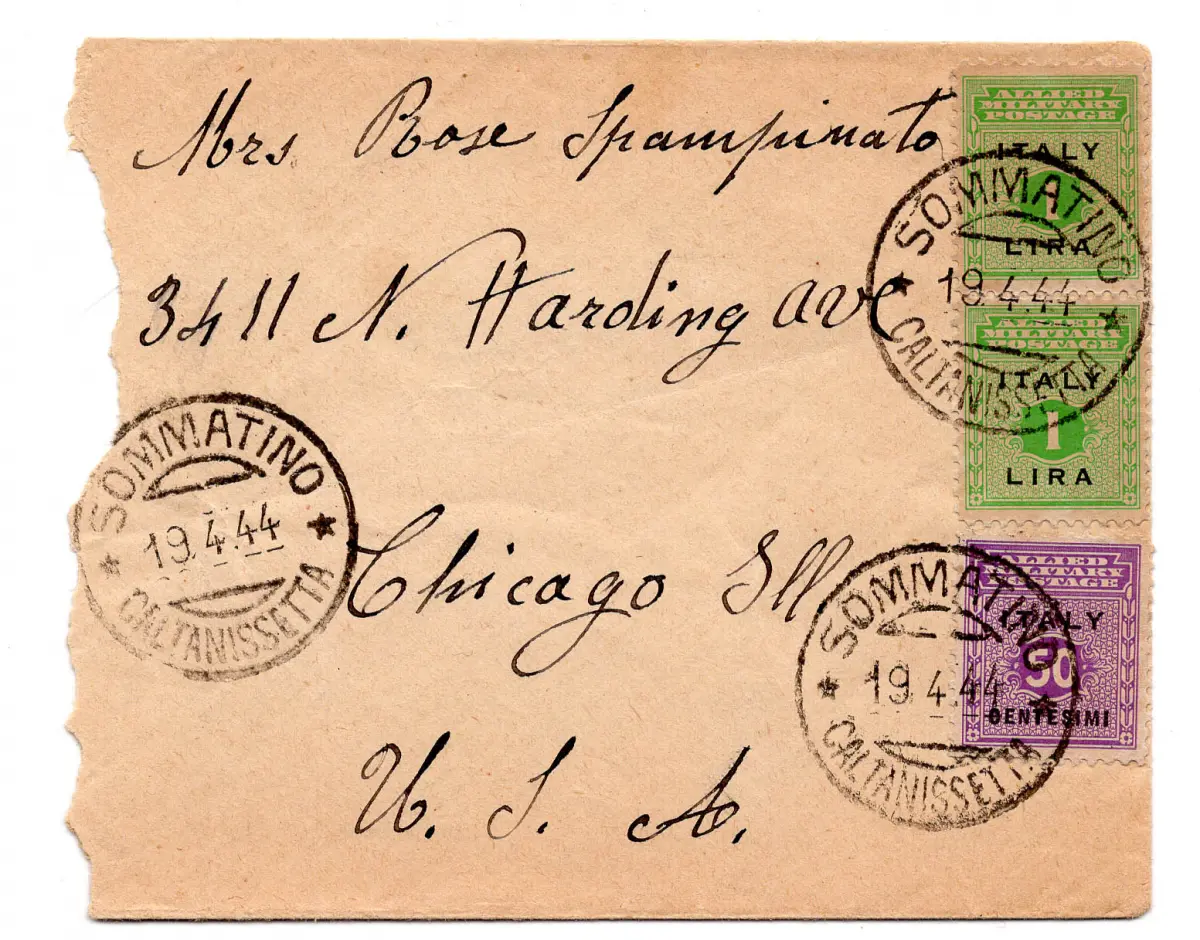 Mrs Rose Spampinato
3411 N. Harding ave
Chicago Ill
U. S. A.
ALLIED
MILITARY
POSTAGE
ITALY
1
LIRA
ALLIED
MILITARY
POSTAGE
ITALY
1
LIRA
ALLIED
MILITARY
POSTAGE
ITALY
50
CENTESIMI
SOMMATINO
19.4.44
CALTANISSETTA
SOMMATINO
19.4.44
CALTANISSETTA
SOMMATINO
19.4.44
CALTANISSETTA